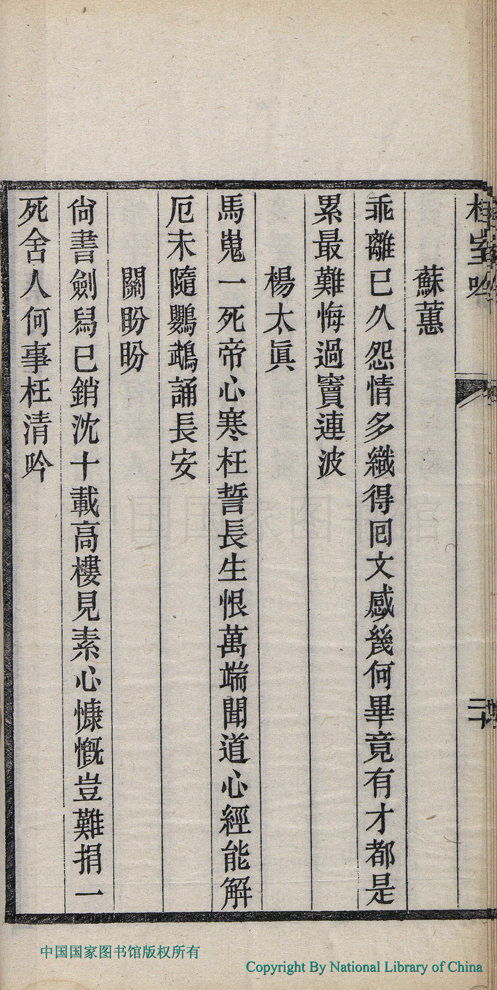 蘇蕙
乖離已久怨情多織得回文感幾何畢竟有才都是
累最難悔過竇連波
楊太眞
馬嵬一死帝心寒枉誓長生恨萬端聞道心經能解
厄未隨鸚鵡誦長安
關盼盼
尙書劍舄已銷沈十載高樓見素心慷慨豈難捐一
死舍人何事枉清吟
中国国家图书馆版权所有
Copyright By National Library of China